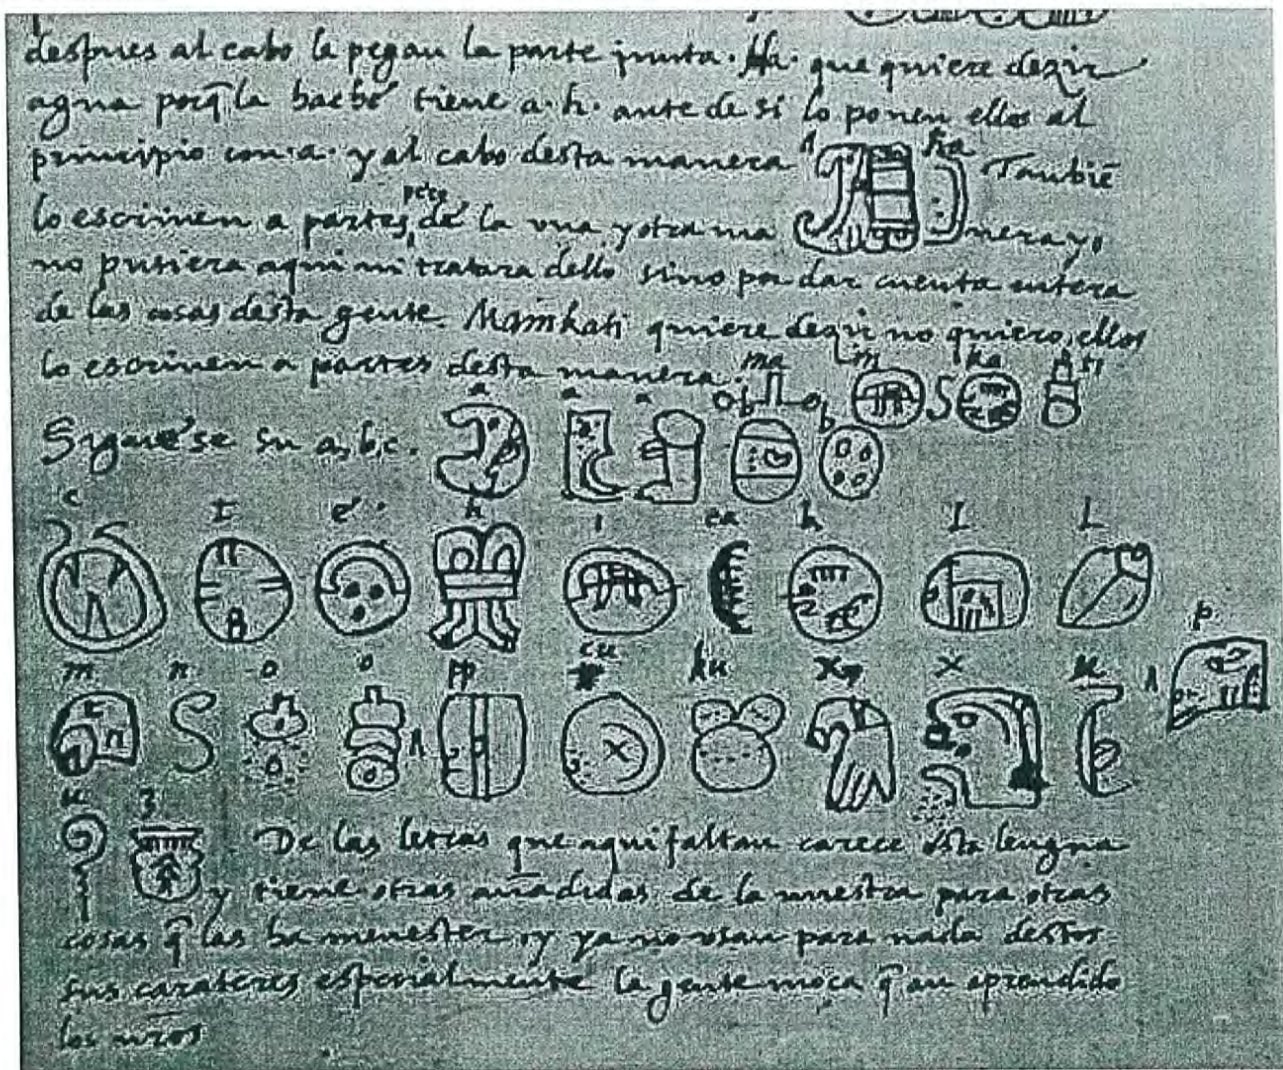 despues al cabo le pegan la parte junta. Ha. que quiere dezir
agua porq̃ la hachė tiene a.h. ante de si lo ponen ellos al
principio con a. y al cabo desta manera ha Tambiē
lo escriven a partes, pero de la una y otra ma nera yo
no pusiera aqui ni tratara dello sino por dar cuenta entera
de las cosas desta gente. Mainkati quiere dezir no quiero, ellos
lo escriven a partes desta manera. ma i n ka ti
Siguese su a, b, c. a a a b b
c t e h i ca k l l
m n o o pp cu ku x x u p
u z De las letras que aqui faltan carece esta lengua
y tiene otras añadidas de la nuestra para otras
cosas q̃ las ha menester, y ya no usan para nada destos
sus carateres especialmente la gente moça q̃ an aprendido
los nr̃os